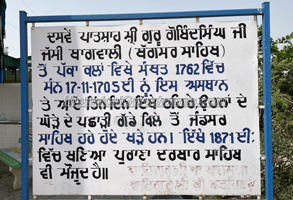 ਦਸਵੇਂ ਪਾਤਸ਼ਾਹ ਸ਼੍ਰੀ ਗੁਰੂ ਗੋਬਿੰਦਸਿੰਘ ਜੀ
ਜੱਸੀ ਬਾਗਵਾਲੀ (ਬੰਗਸਰ ਸਾਹਿਬ)
ਤੋਂ ਪੱਕਾ ਕਲਾਂ ਵਿਖੇ ਸੰਬਤ 1762 ਵਿੱਚ
ਸੰਨ 17-11-1705 ਦੀ ਨੂੰ ਇਸ ਅਸਥਾਨ
ਤੇ ਆਏ ਤਿੰਨ ਦਿਨ ਇੱਥੇ ਠਹਿਰੇ ਉਹਨਾਂ ਦੇ
ਘੋੜੇ ਦੇ ਪਛਾੜੀ ਗੱਡੇ ਕਿੱਲੇ ਤੋਂ ਜੰਡਸਰ
ਸਾਹਿਬ ਹਰੇ ਹੋਏ ਖੜੇ ਹਨ। ਇੱਥੇ 1871 ਈ:
ਵਿੱਚ ਬਣਿਆ ਪੁਰਾਣਾ ਦਰਬਾਰ ਸਾਹਿਬ
ਵੀ ਮੌਜੂਦ ਹੈ॥